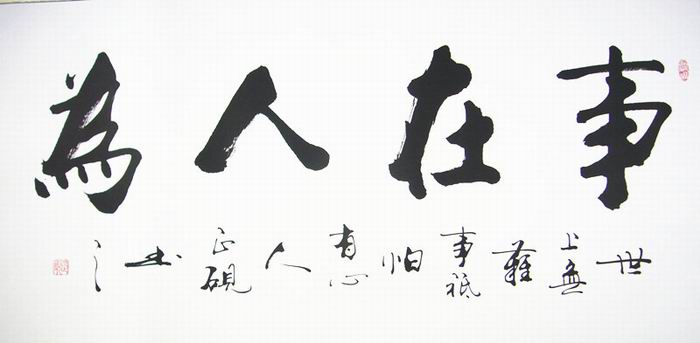 事在人為
世上無難事祇怕有心人 正硯書之